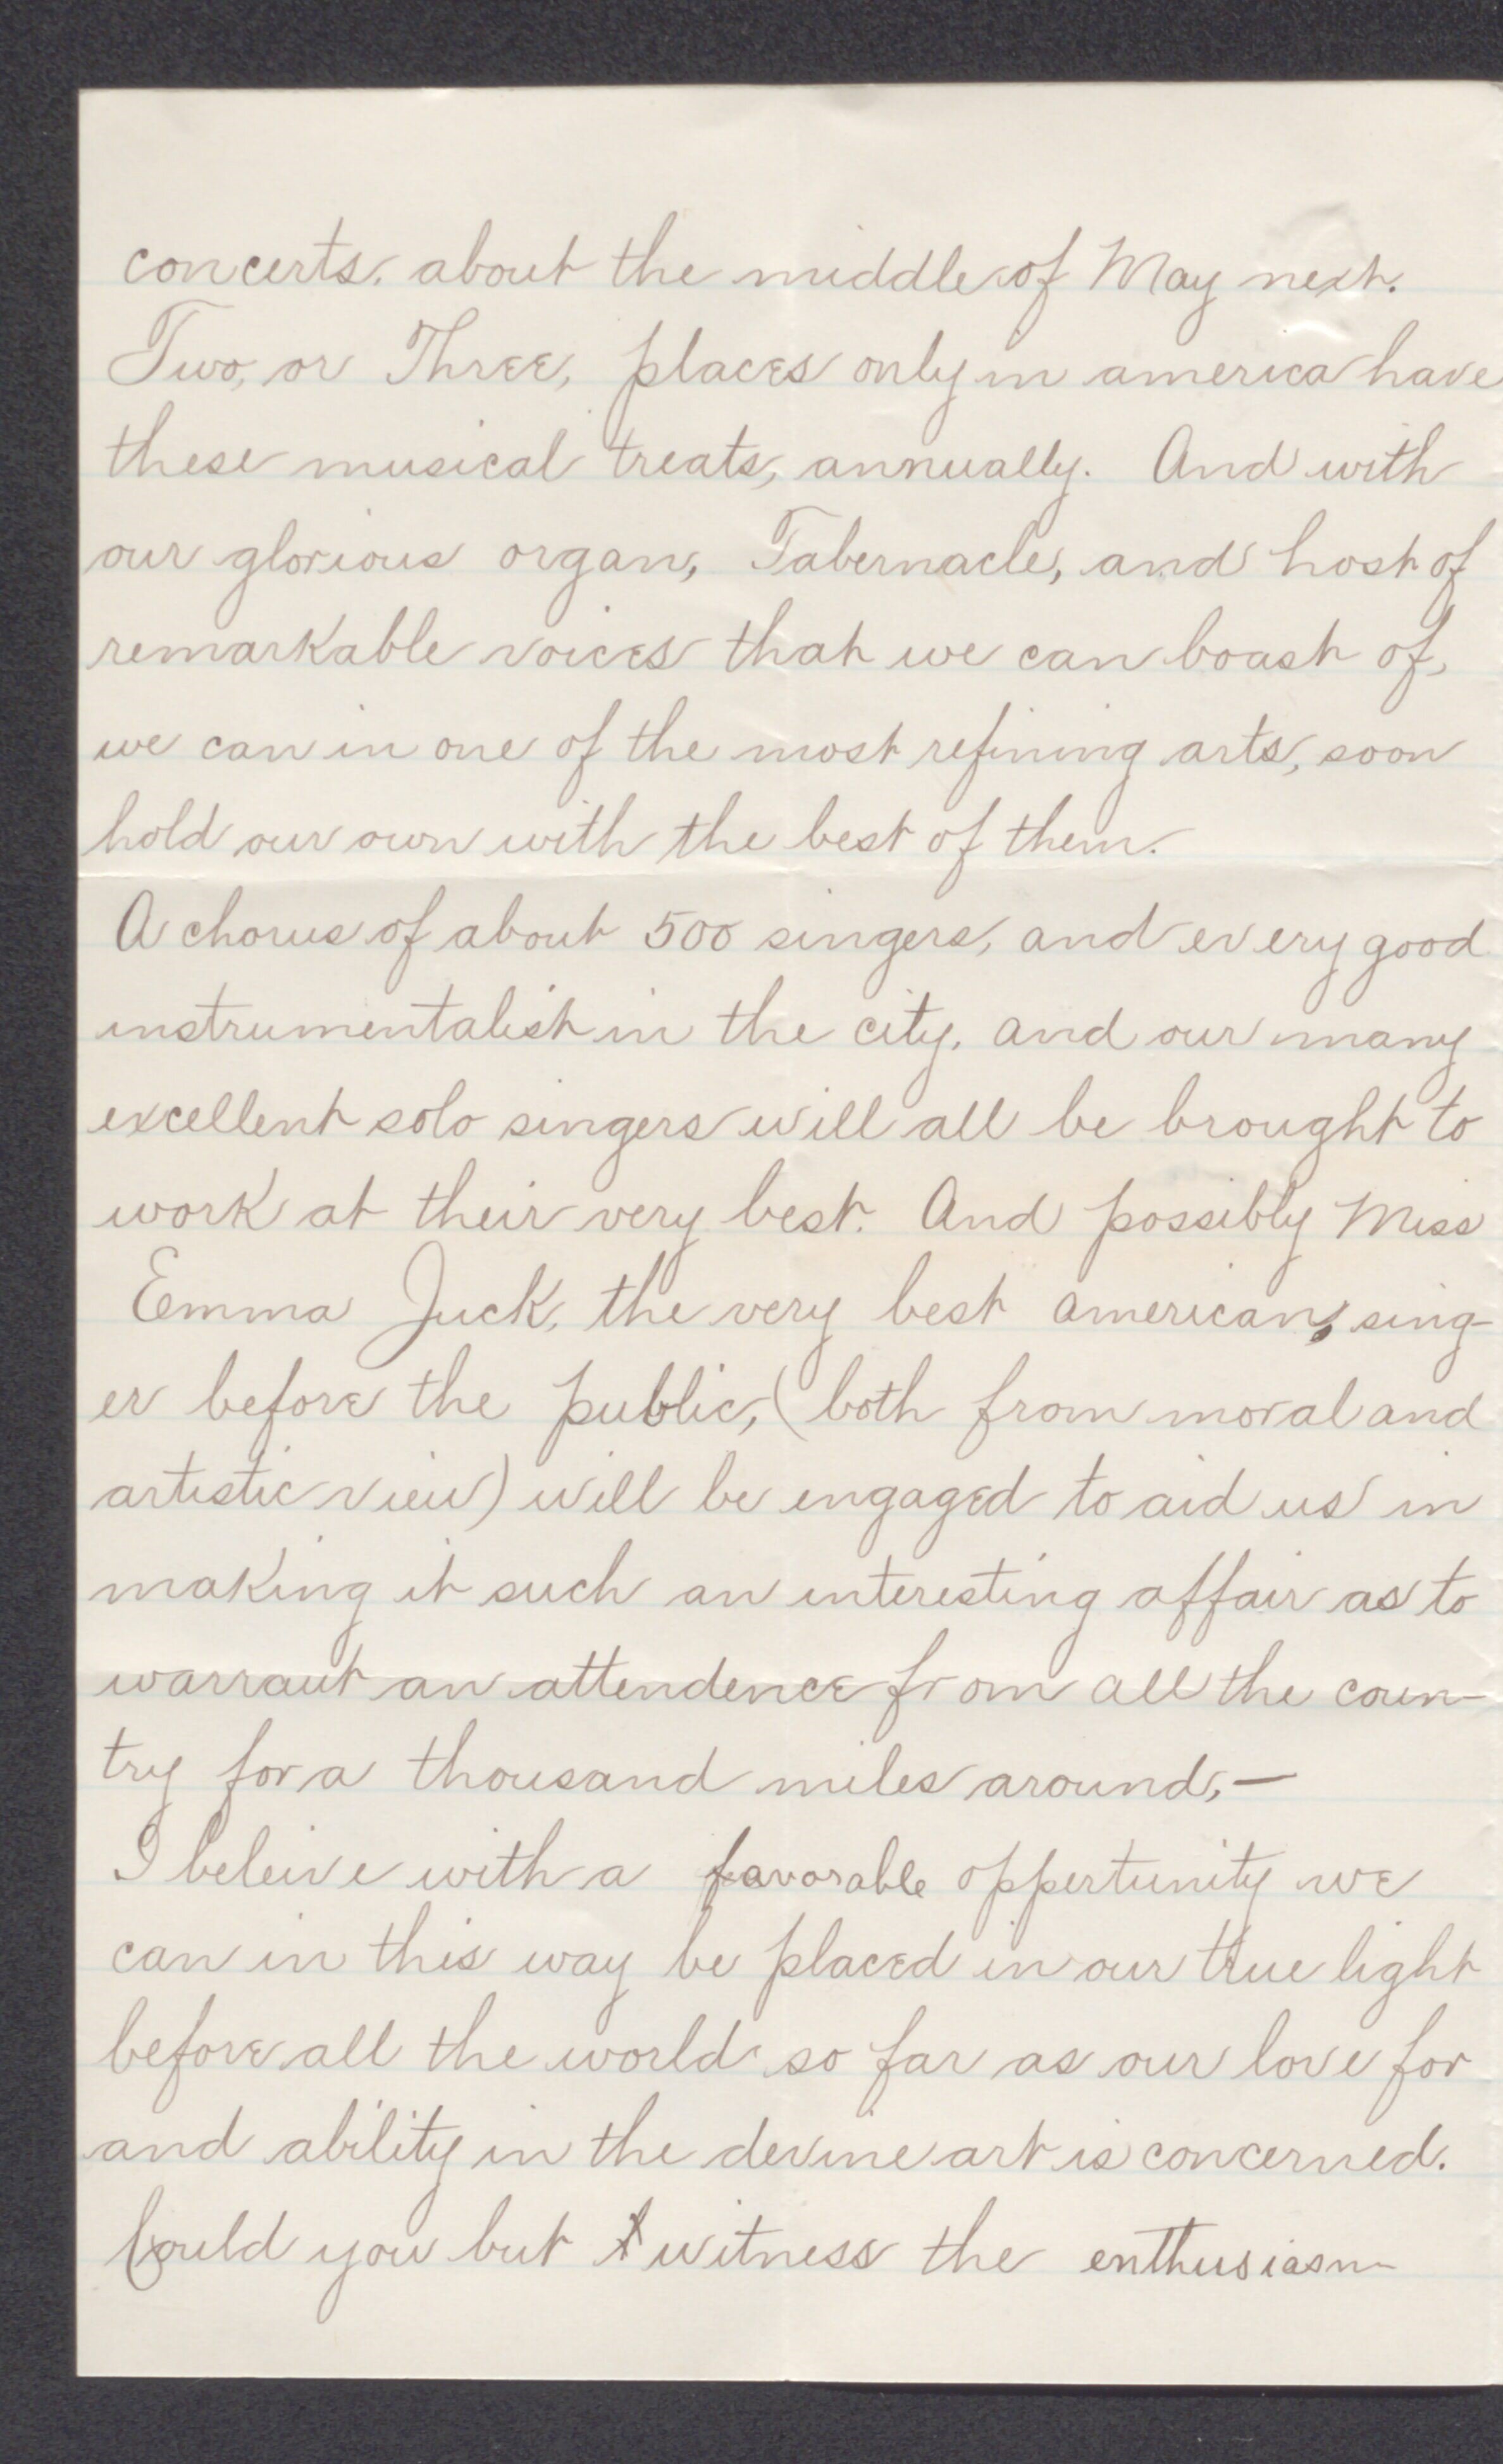 concerts. about the middle of May next.
Two, or Three, places only in america have
these musical treats, annually. And with
our glorious organ, Tabernacle, and host of
remarkable voices that we can boast of,
we can in one of the most refining arts, soon
hold our own with the best of them.
A chorus of about 500 singers, and every good
instrumentalist in the city, and our many
excellent solo singers will all be brought to
work at their very best. And possibly Miss
Emma Juck, the very best american, sing-
er before the public, (both from moral and
artistic view) will be engaged to aid us in
making it such an interesting affair as to
warraut an attendence from all the coun-
try for a thousand miles around,—
I beleive with a favorable oppertunity we
can in this way be placed in our true light
before all the world so far as our love for
and ability in the devine art is concerned.
Could you but witness the enthusiasm